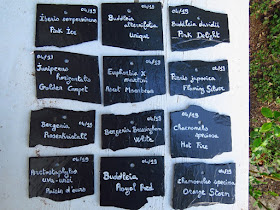 04/19
Iberis sempervirens
Pink Ice
04/19
Buddleia
alternifolia
Unique
04/19
Buddleia davidii
Pink Delight
04/19
Juniperus
horizontalis
Golden Carpet
04/19
Euphorbia x
martini
Ascot Moonbeam
04/19
Pieris japonica
Flaming Silver
04/19
Bergenia
Rosenkristall
04/19
Bergenia Bressingham
White
04/19
Chaenomeles
speciosa
Hot Fire
04/19
Arctostaphylos
uva-ursi
Raisin d'ours
04/19
Buddleia
Royal Red
04/19
Chaenomeles speciosa
Orange Storm